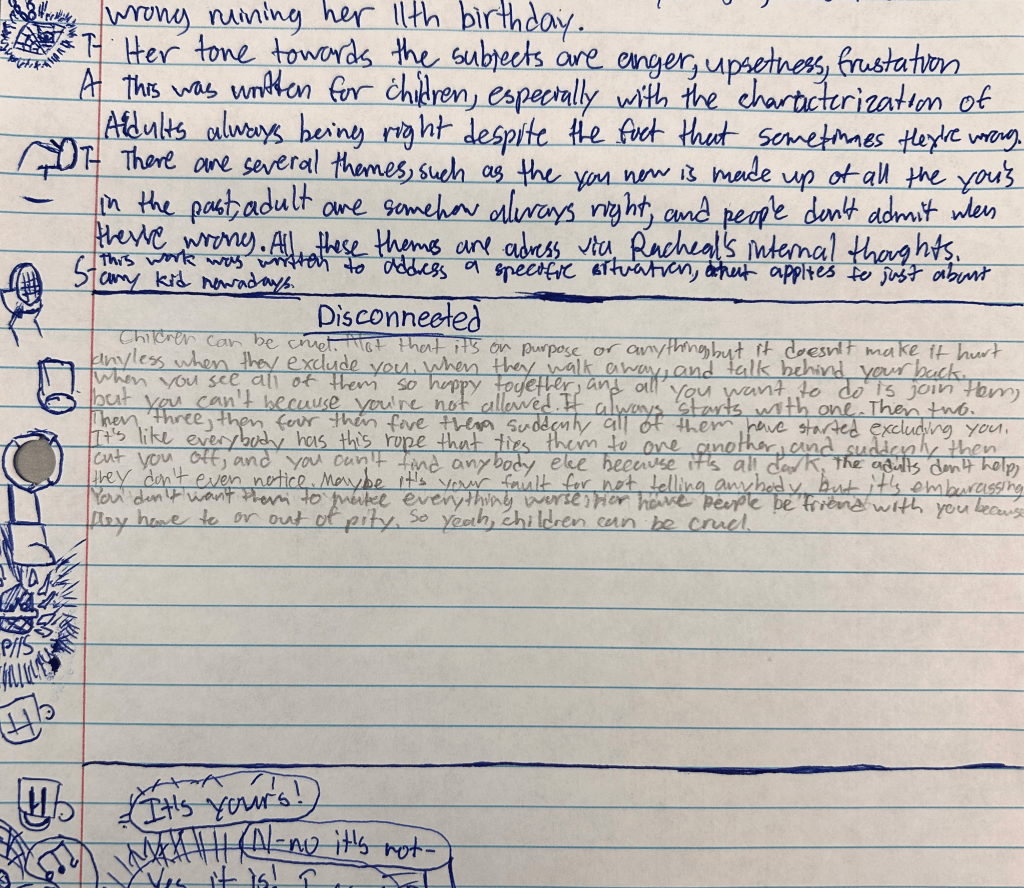 wrong ruining her 11th birthday.
T- Her tone towards the subjects are anger, upsetness, frustation
A- This was written for children, especially with the characterization of
Adults always being right despite the fact that sometimes they're wrong.
T- There are several themes, such as the you now is made up of all the you's
in the past, adult are somehow always right, and people don't admit when
they're wrong. All these themes are adress via Racheal's internal thoughts.
S- this work was written to address a specific situation, that applies to just about
any kid nowadays.
Disconnected
Children can be cruel. Not that it's on purpose or anything, but it doesn't make it hurt
anyless when they exclude you. when they walk away, and talk behind your back.
When you see all of them so happy together, and all you want to do is join them,
but you can't because you're not allowed. It always starts with one. Then two.
Then three, then four then five then suddenly all of them have started excluding you.
It's like everybody has this rope that ties them to one another, and suddenly then
cut you off, and you can't find anybody else because it's all dark. The adults don't help,
they don't even notice. Maybe it's your fault for not telling anybody but it's embarassing
You don't want them to make everything worse, nor have people be friend with you because
they have to or out of pity. So yeah, children can be cruel.
P//S
H
H
It's yours!
N-no it's not-
Yes it is! I